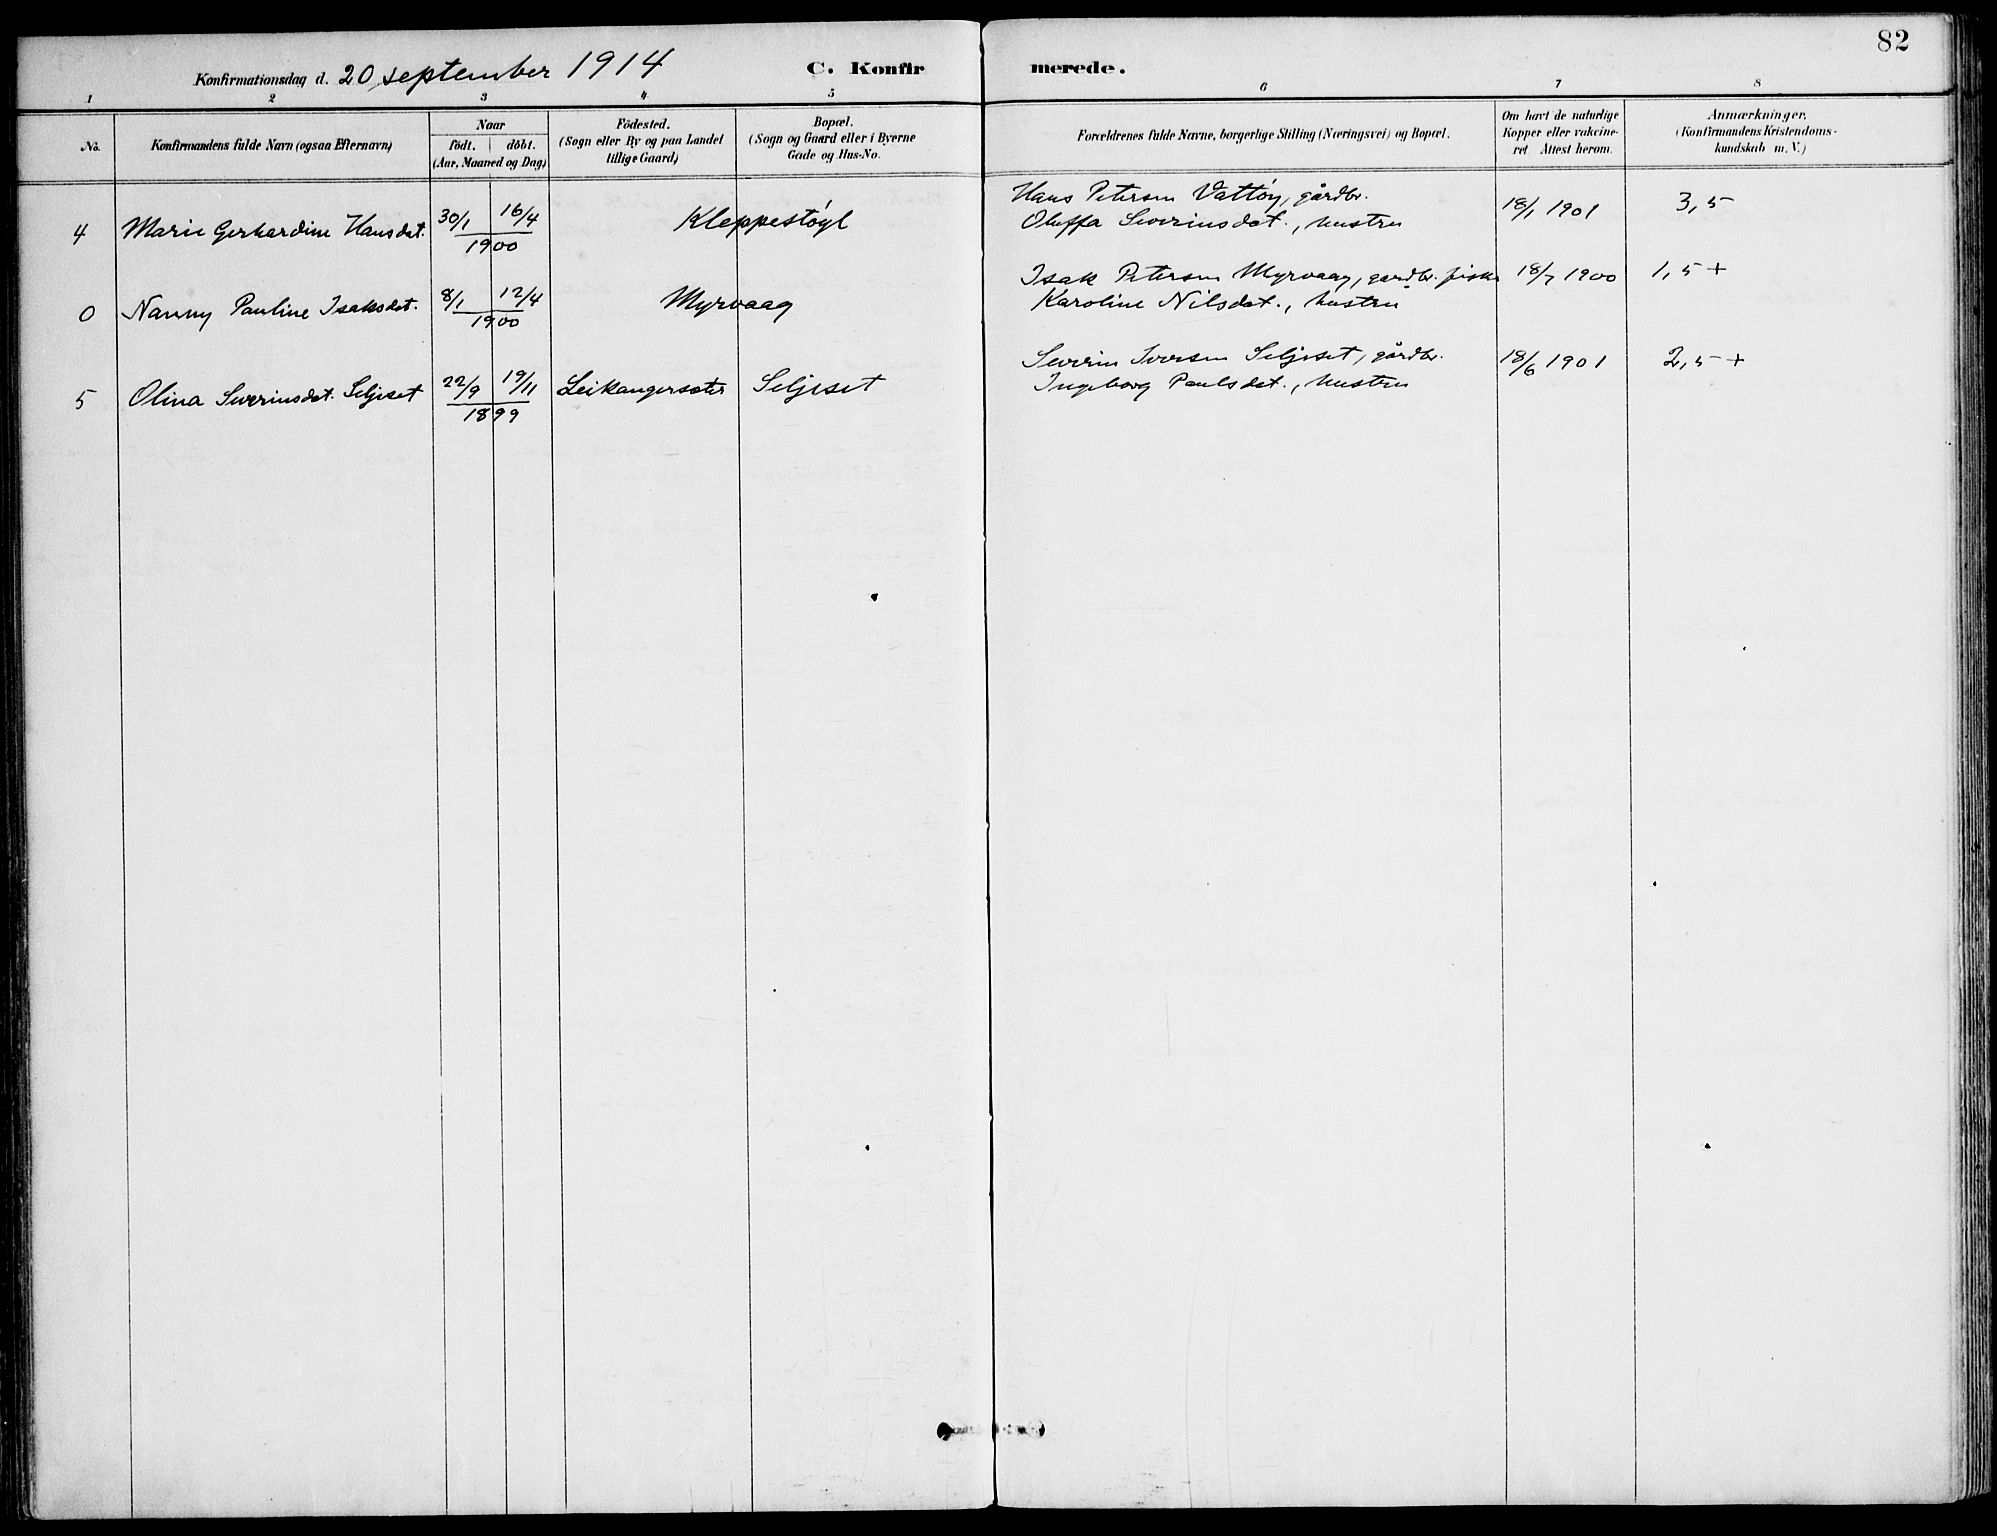 82
Konfirmationsdag d. 20 september 1914 C. Konfir merede.
1 2 3 4 5 6 7 8
No. Konfirmandens fulde Navn (ogsaa Efternavn) Naar födt. döbt. (Aar, Maaned og Dag) Födested. (Sogn eller By og paa Landet tillige Gaard) Bopæl. (Sogn og Gaard eller i Byerne Gade og Hus-No. Forældrenes fulde Navne, borgerlige Stilling (Næringsvei) og Bopæl. Om havt de naturlige Kopper eller vakcineret Attest herom. Anmærkninger, (Konfirmandens Kristendomskundskab m. V.)
4 Marie Gerhardine Hansdat. 30/1 16/4 1900 Kleppestøyl Hans Petersen Vattöy, gårdbr. 18/1 1901 3,5
Oluffa Severinsdat., hustru
0 Nanny Pauline Isaksdat. 8/1 12/4 1900 Myrvaag Isak Petersen Myrvaag, gårdbr. fisker 18/7 1900 1,5 +
Karoline Nilsdat., hustru
5 Olina Severinsdat. Seljeset 22/9 19/11 1899 Leikangersæter Seljeset Severin Iversen Seljeset, gårdbr. 18/6 1901 2,5 +
Ingeborg Paulsdat., hustru